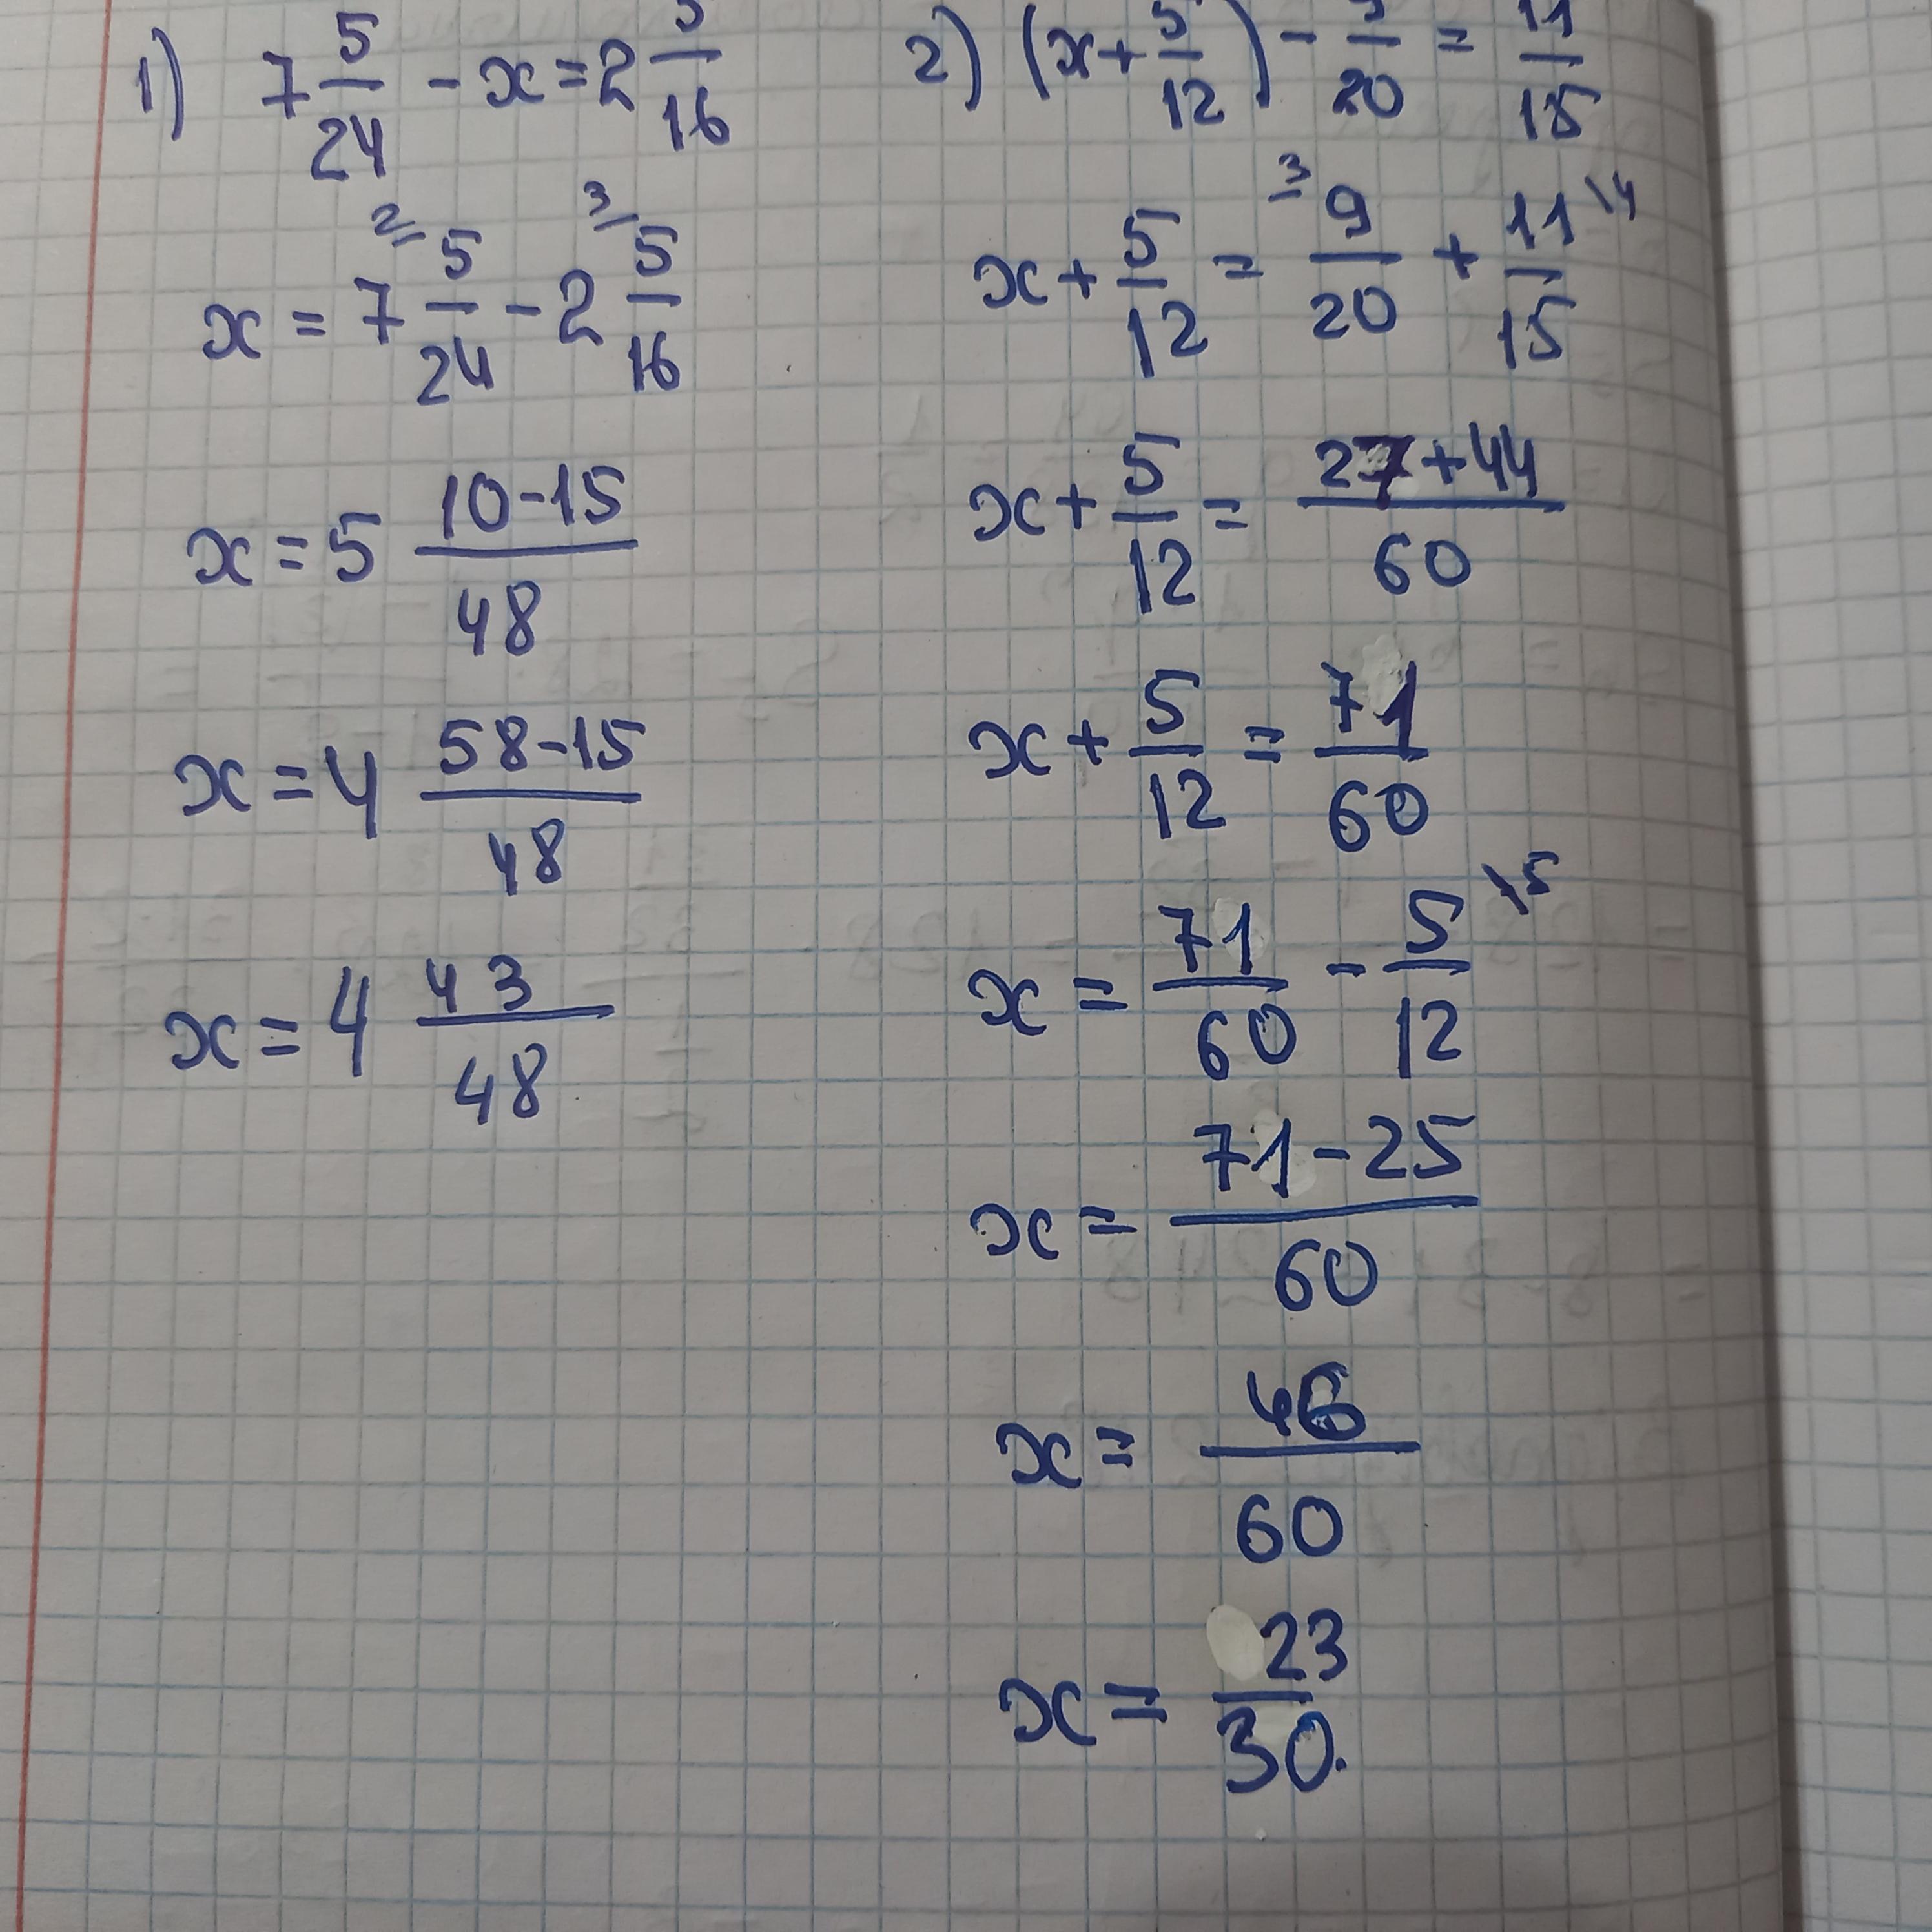 1) 7 5/24 - x = 2 5/16
x = 7 5/24 - 2 5/16
x = 5 (10-15)/48
x = 4 (58-15)/48
x = 4 43/48
2) (x + 5/12) - 9/20 = 11/15
x + 5/12 = 9/20 + 11/15
x + 5/12 = (27+44)/60
x + 5/12 = 71/60
x = 71/60 - 5/12
x = (71-25)/60
x = 46/60
x = 23/30.